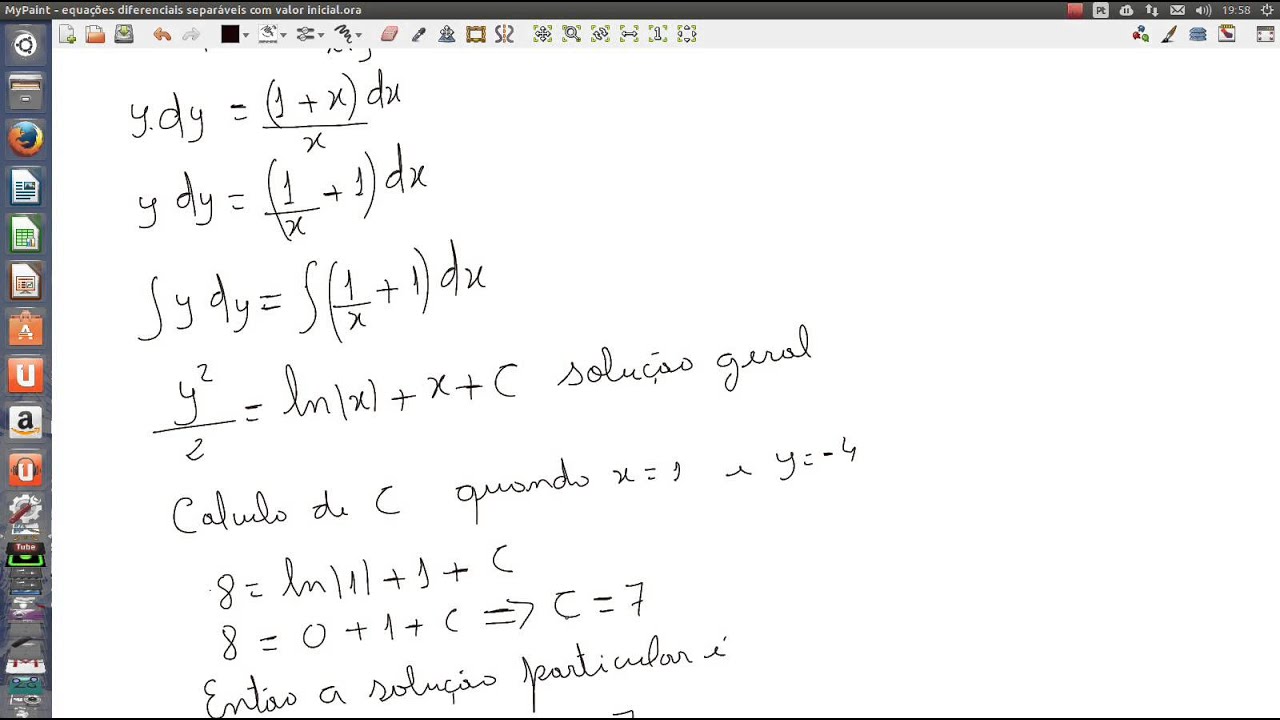 MyPaint - equações diferenciais separáveis com valor inicial.ora
Pt
19:58
y.dy = (1 + x)dx / x
y dy = (1/x + 1) dx
∫ y dy = ∫ (1/x + 1) dx
y²/2 = ln|x| + x + C solução geral
Calculo de C quando x = 1 e y = -4
8 = ln|1| + 1 + C
8 = 0 + 1 + C => C = 7
Então a solução particular é
7
Tube